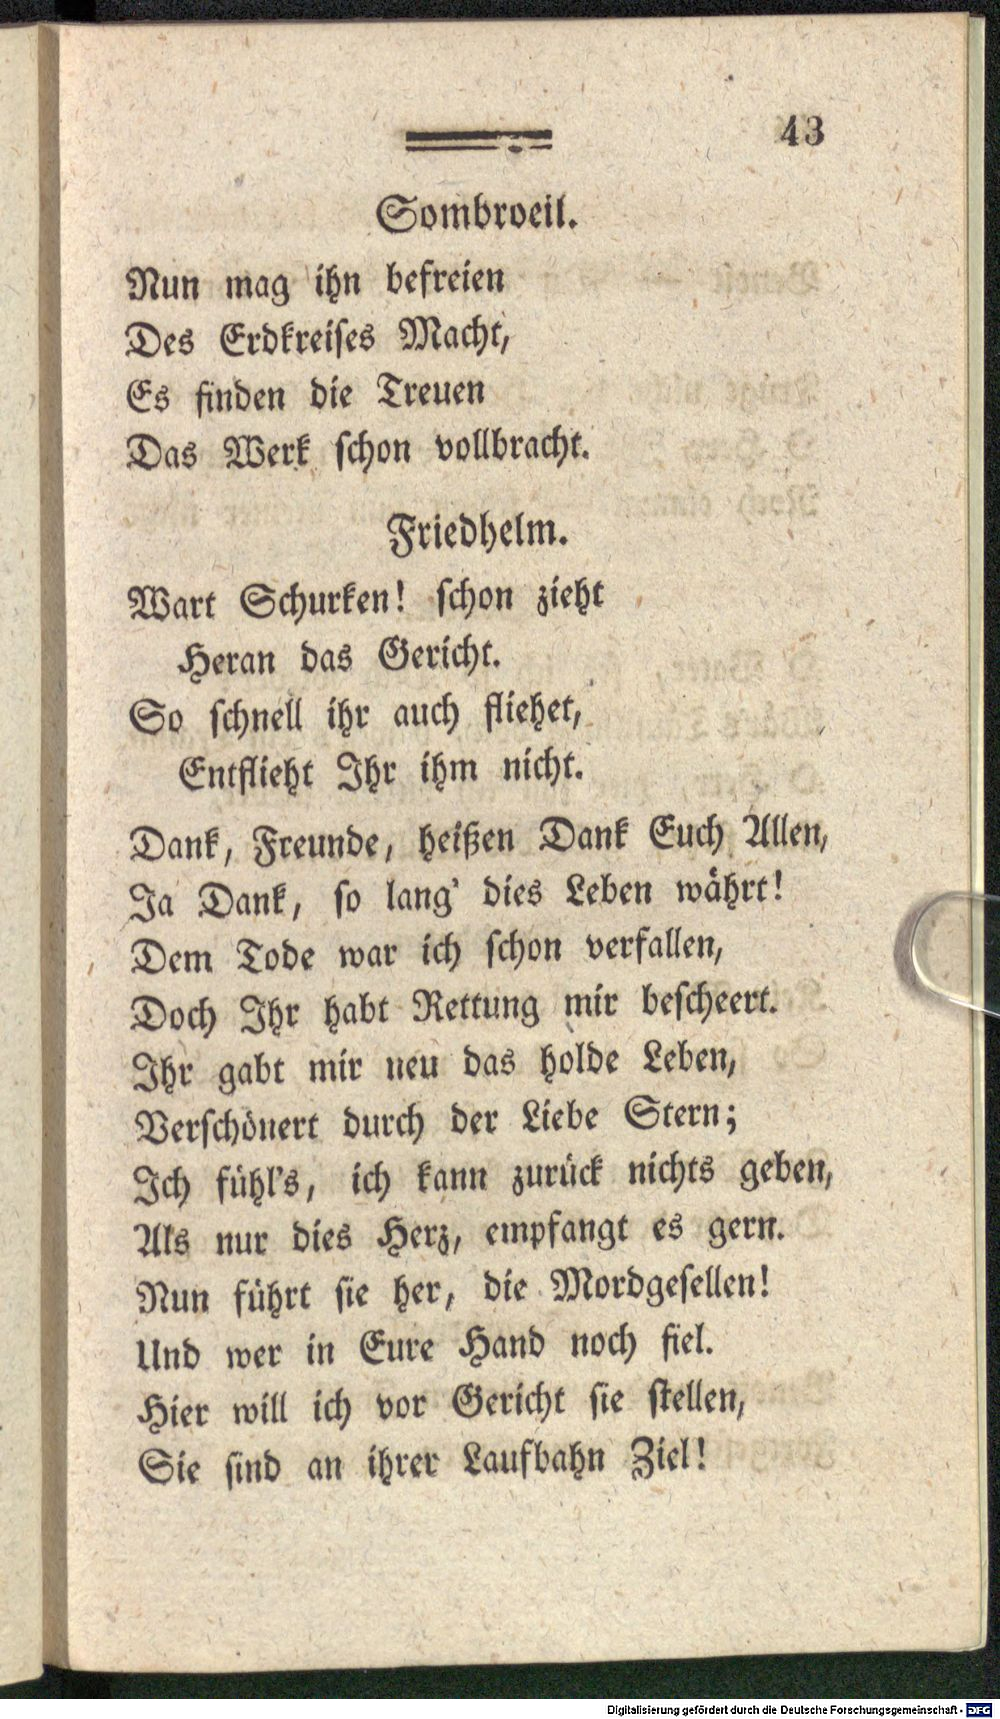 43
Sombroeil.
Nun mag ihn befreien
Des Erdkreises Macht,
Es finden die Treuen
Das Werk schon vollbracht.
Friedhelm.
Wart Schurken! schon zieht
Heran das Gericht.
So schnell ihr auch fliehet,
Entflieht Ihr ihm nicht.
Dank, Freunde, heißen Dank Euch Allen,
Ja Dank, so lang' dies Leben währt!
Dem Tode war ich schon verfallen,
Doch Ihr habt Rettung mir bescheert.
Ihr gabt mir neu das holde Leben,
Verschönert durch der Liebe Stern;
Ich fühl's, ich kann zurück nichts geben,
Als nur dies Herz, empfangt es gern.
Nun führt sie her, die Mordgesellen!
Und wer in Eure Hand noch fiel.
Hier will ich vor Gericht sie stellen,
Sie sind an ihrer Laufbahn Ziel!
Digitalisierung gefördert durch die Deutsche Forschungsgemeinschaft - DFG